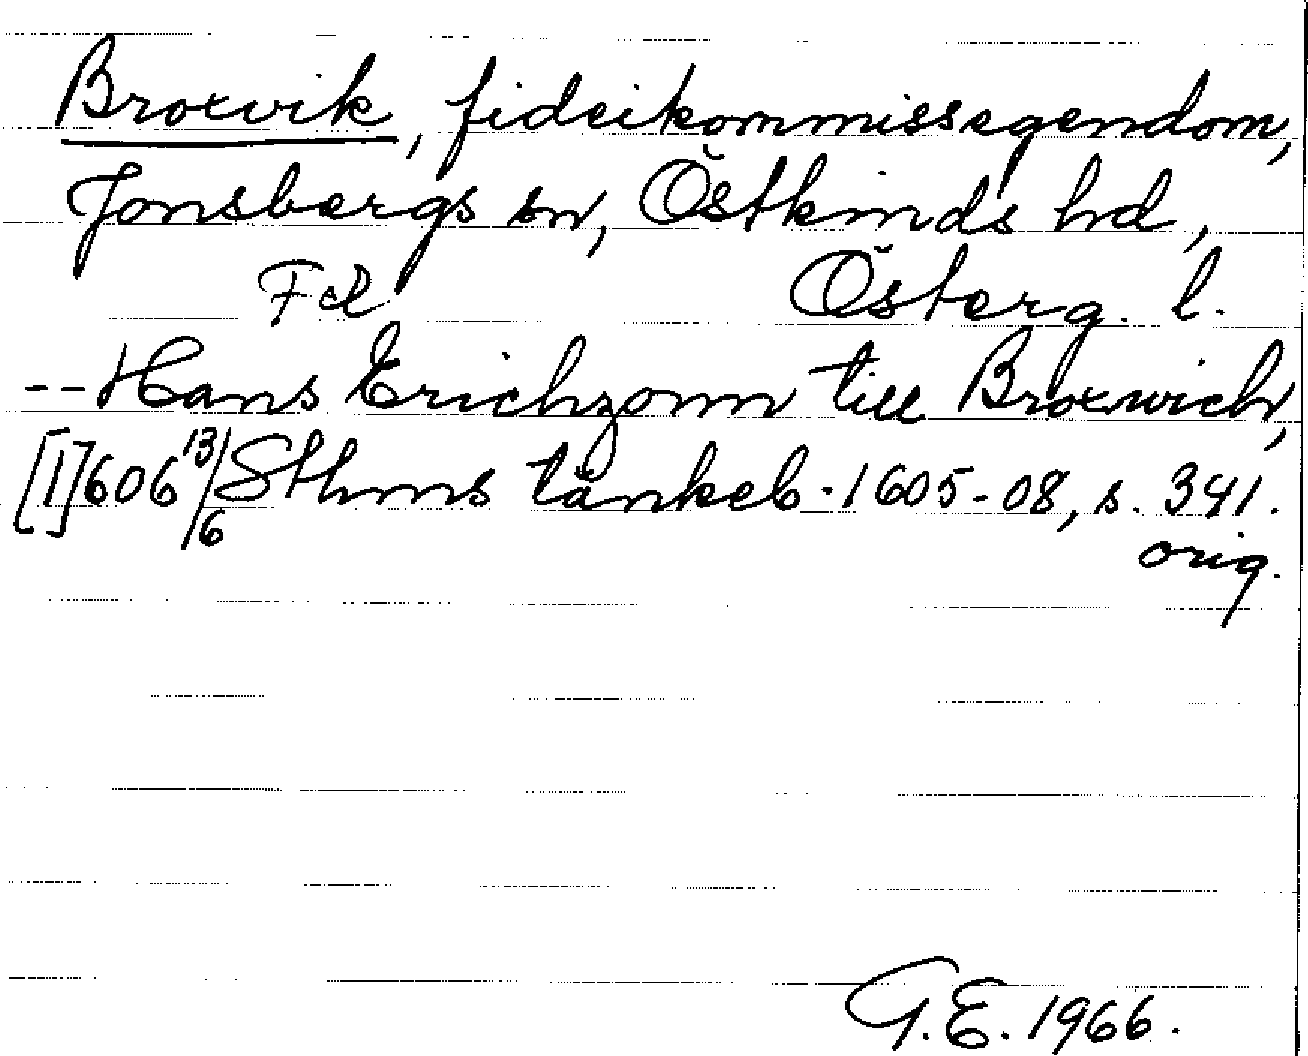 Broxvik, fideikommissegendom,
Jonsbergs sn, Östkinds hd,
Fd Österg. l.
-- Hans Erichzonn till Broxwich,
[1]606 13/6 Sthms tänkeb. 1605-08, s. 341.
orig.
G.E. 1966.